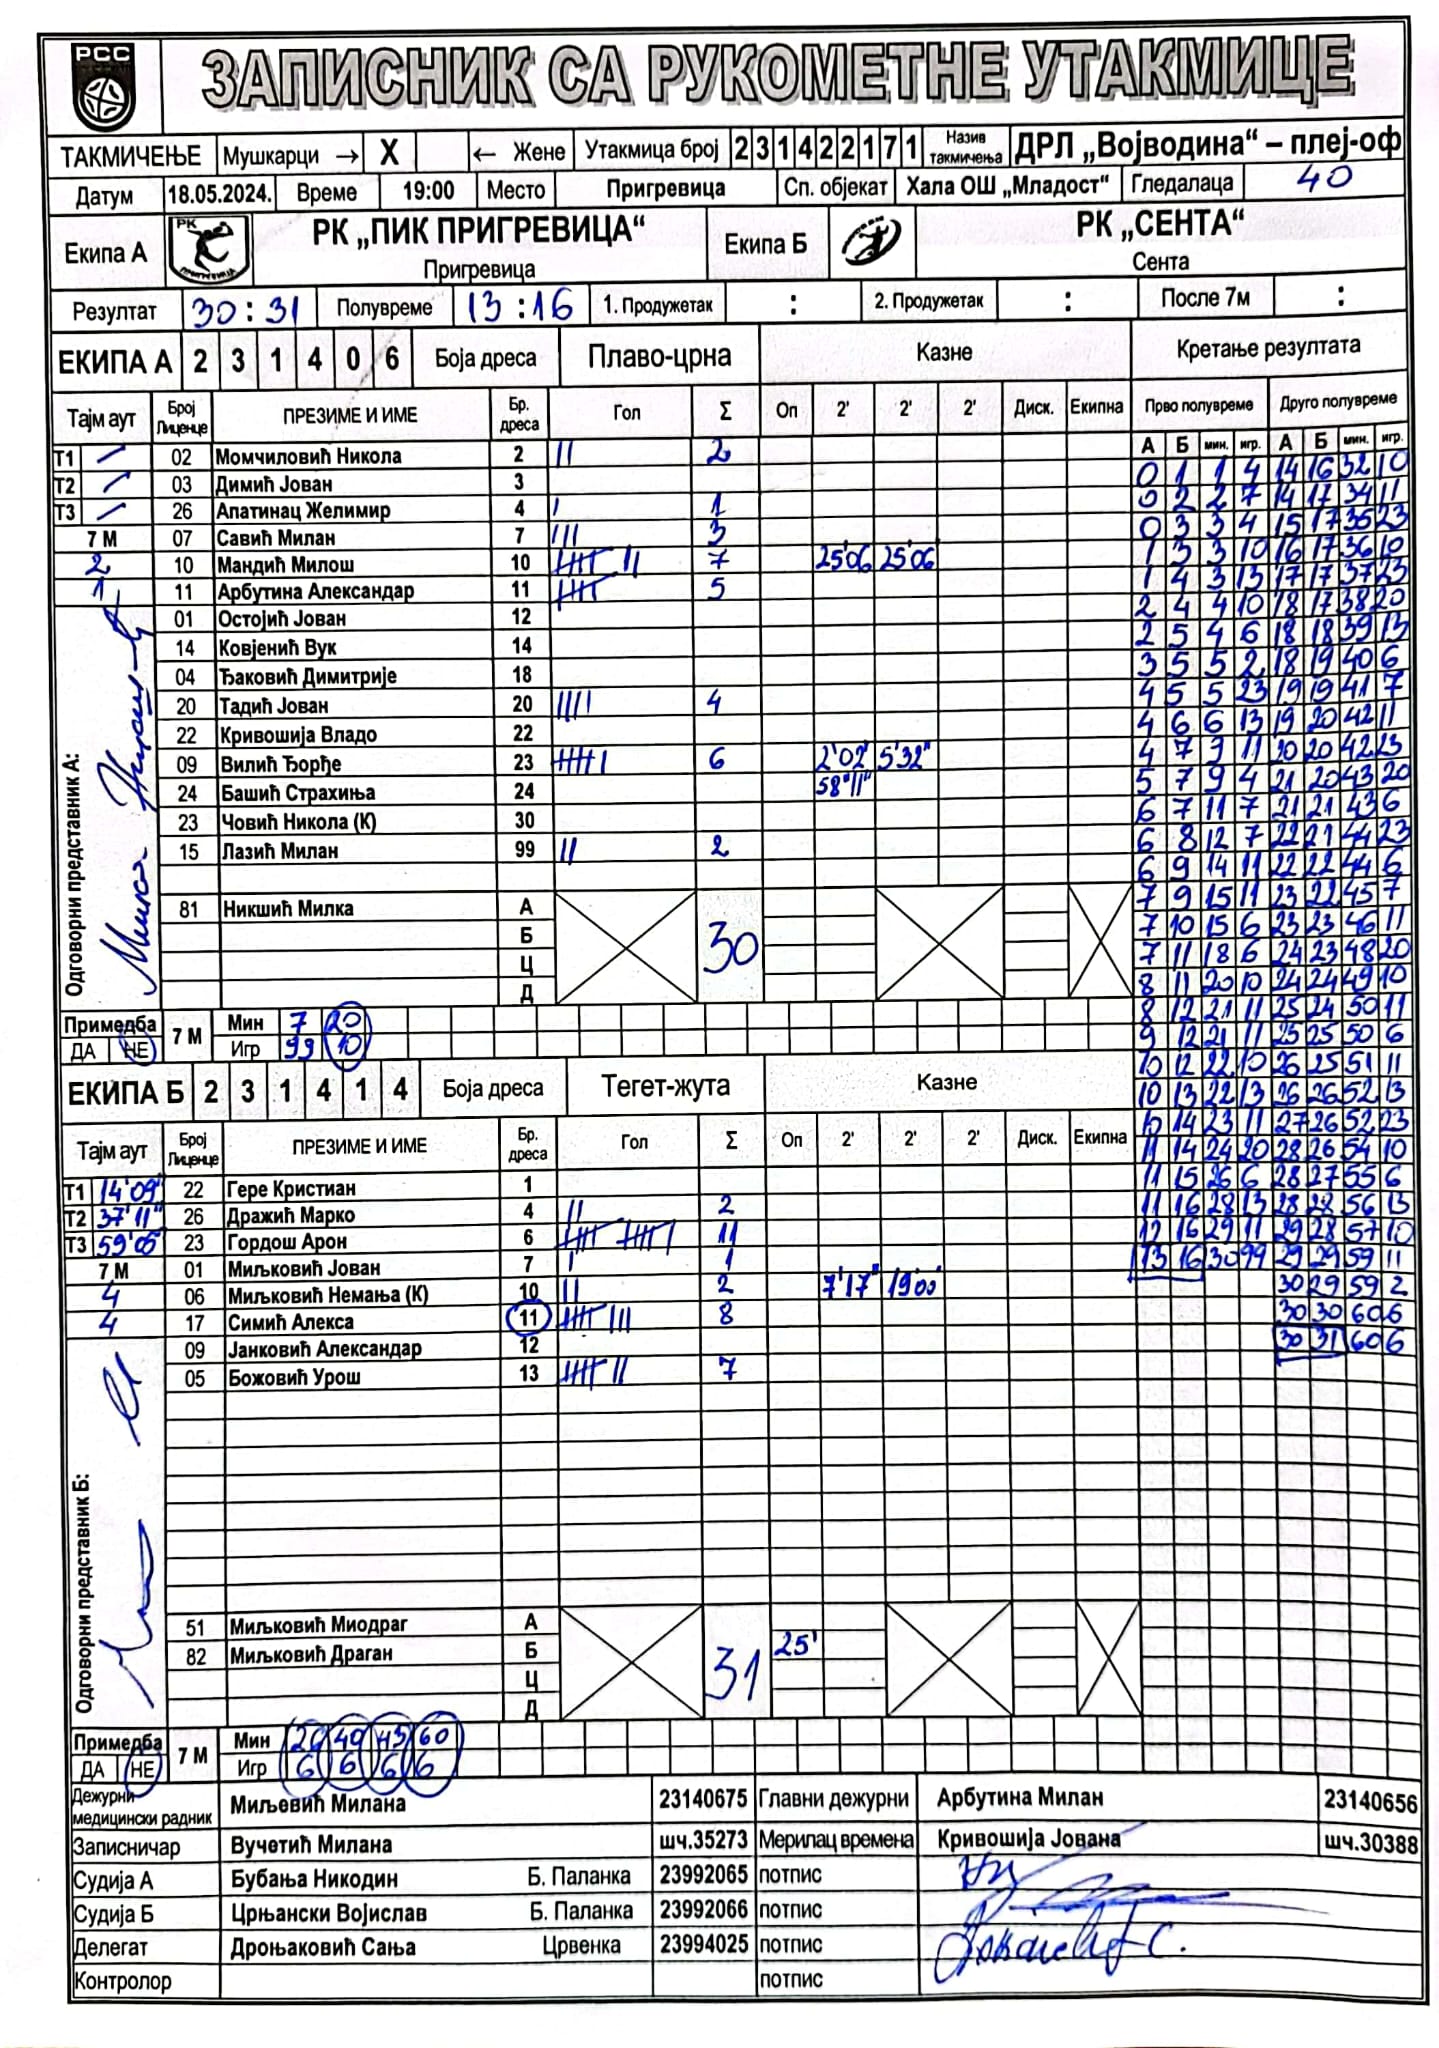 РСС
ЗАПИСНИК СА РУКОМЕТНЕ УТАКМИЦЕ
ТАКМИЧЕЊЕ Мушкарци → X ← Жене Утакмица број 2 3 1 4 2 2 1 7 1 Назив такмичења ДРЛ „Војводина“ – плеј-оф
Датум 18.05.2024. Време 19:00 Место Пригревица Сп. објекат Хала ОШ „Младост“ Гледалаца 40
Екипа А РК „ПИК ПРИГРЕВИЦА“ Пригревица Екипа Б РК „СЕНТА“ Сента
Резултат 30:31 Полувреме 13:16 1. Продужетак : 2. Продужетак : После 7м :
ЕКИПА А 2 3 1 4 0 6 Боја дреса Плаво-црна Казне Кретање резултата
Тајм аут Број Лиценце ПРЕЗИМЕ И ИМЕ Бр. дреса Гол Σ Оп 2' 2' 2' Диск. Екипна Прво полувреме Друго полувреме
А Б мин. игр. А Б мин. игр.
Т1 02 Момчиловић Никола 2 || 2
Т2 03 Димић Јован 3
Т3 26 Апатинац Желимир 4 | 1
7 М 07 Савић Милан 7 ||| 3
2 10 Мандић Милош 10 7 25'06 25'06
1 11 Арбутина Александар 11 5
01 Остојић Јован 12
14 Ковјенић Вук 14
04 Ђаковић Димитрије 18
20 Тадић Јован 20 |||| 4
22 Кривошија Владо 22
09 Вилић Ђорђе 23 6 2'02' 5'32"
24 Башић Страхиња 24 58"11"
23 Човић Никола (К) 30
15 Лазић Милан 99 || 2
81 Никшић Милка А
Б
Ц
Д
30
Одговорни представник А:
Примедба ДА НЕ 7 М Мин 7 20
Игр 99 10
0 1 1 4 14 16 32 10
0 2 2 7 14 17 34 11
0 3 3 4 15 17 35 23
1 3 3 10 16 17 36 10
1 4 3 13 17 17 37 23
2 4 4 10 18 17 38 20
2 5 4 6 18 18 39 13
3 5 5 2 18 19 40 6
4 5 5 23 19 19 41 7
4 6 6 13 19 20 42 11
4 7 9 11 20 20 42 23
5 7 9 4 21 20 43 20
6 7 11 7 21 21 43 6
6 8 12 7 22 21 44 23
6 9 14 11 22 22 44 6
7 9 15 11 23 22 45 7
7 10 15 6 23 23 46 11
7 11 18 6 24 23 48 20
8 11 20 10 24 24 49 10
8 12 21 11 25 24 50 11
9 12 21 11 25 25 50 6
10 12 22 10 26 25 51 11
10 13 22 13 26 26 52 13
10 14 23 11 27 26 52 23
11 14 24 20 28 26 54 10
11 15 26 6 28 27 55 6
11 16 28 13 28 28 56 13
12 16 29 11 29 28 57 10
13 16 30 99 29 29 59 11
30 29 59 2
30 30 60 6
30 31 60 6
ЕКИПА Б 2 3 1 4 1 4 Боја дреса Тегет-жута Казне
Тајм аут Број Лиценце ПРЕЗИМЕ И ИМЕ Бр. дреса Гол Σ Оп 2' 2' 2' Диск. Екипна
Т1 14'09" 22 Гере Кристиан 1
Т2 37'11" 26 Дражић Марко 4 || 2
Т3 59'05" 23 Гордош Арон 6 11
7 М 01 Миљковић Јован 7 | 1
4 06 Миљковић Немања (К) 10 || 2 7'17" 19'00"
4 17 Симић Алекса 11 8
09 Јанковић Александар 12
05 Божовић Урош 13 7
51 Миљковић Миодраг А
82 Миљковић Драган Б 25'
Ц
Д
31
Одговорни представник Б:
Примедба ДА НЕ 7 М Мин 40 43 60
Игр 6 6 6 6
Дежурни медицински радник Миљевић Милана 23140675 Главни дежурни Арбутина Милан 23140656
Записничар Вучетић Милана шч.35273 Мерилац времена Кривошија Јована шч.30388
Судија А Бубања Никодин Б. Паланка 23992065 потпис
Судија Б Црњански Војислав Б. Паланка 23992066 потпис
Делегат Дроњаковић Сања Црвенка 23994025 потпис
Контролор потпис